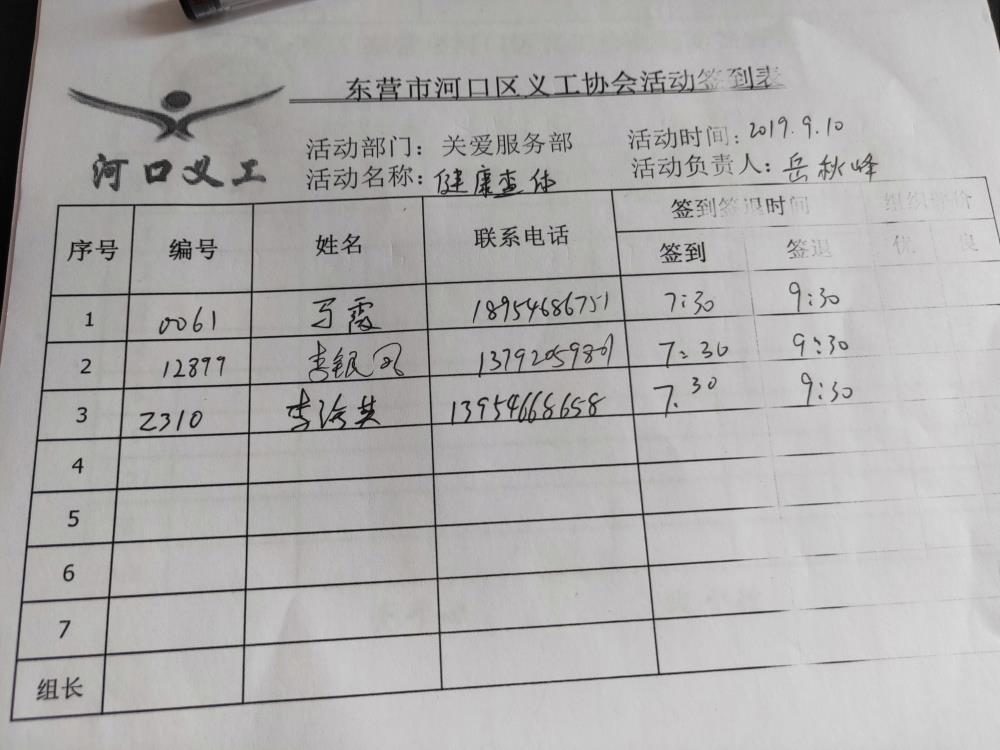 东营市河口区义工协会活动签到表
河口义工
活动部门：关爱服务部 活动时间：2019.9.10
活动名称：健康查体 活动负责人：岳秋峰
序号 编号 姓名 联系电话 签到签退时间 组织评价
签到 签退 优 良
1 0061 马霞 18954686751 7:30 9:30
2 12899 李银凤 13792059807 7:30 9:30
3 2310 李洽英 13954668658 7.30 9:30
4
5
6
7
组长